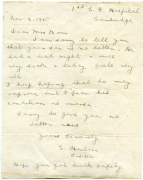 1st E. G. Hospital
Cambridge
Nov. 2. 1915
Dear Mrs
I am sorry to tell you
that your son is no better. He
had a bad night & was
very sick & today feels very
ill.
I keep hoping that he may
improve but I fear his
condition is serious
I am sorry to give you no
better news
Yours sincerely
E.
Sister
Hope you got back safely